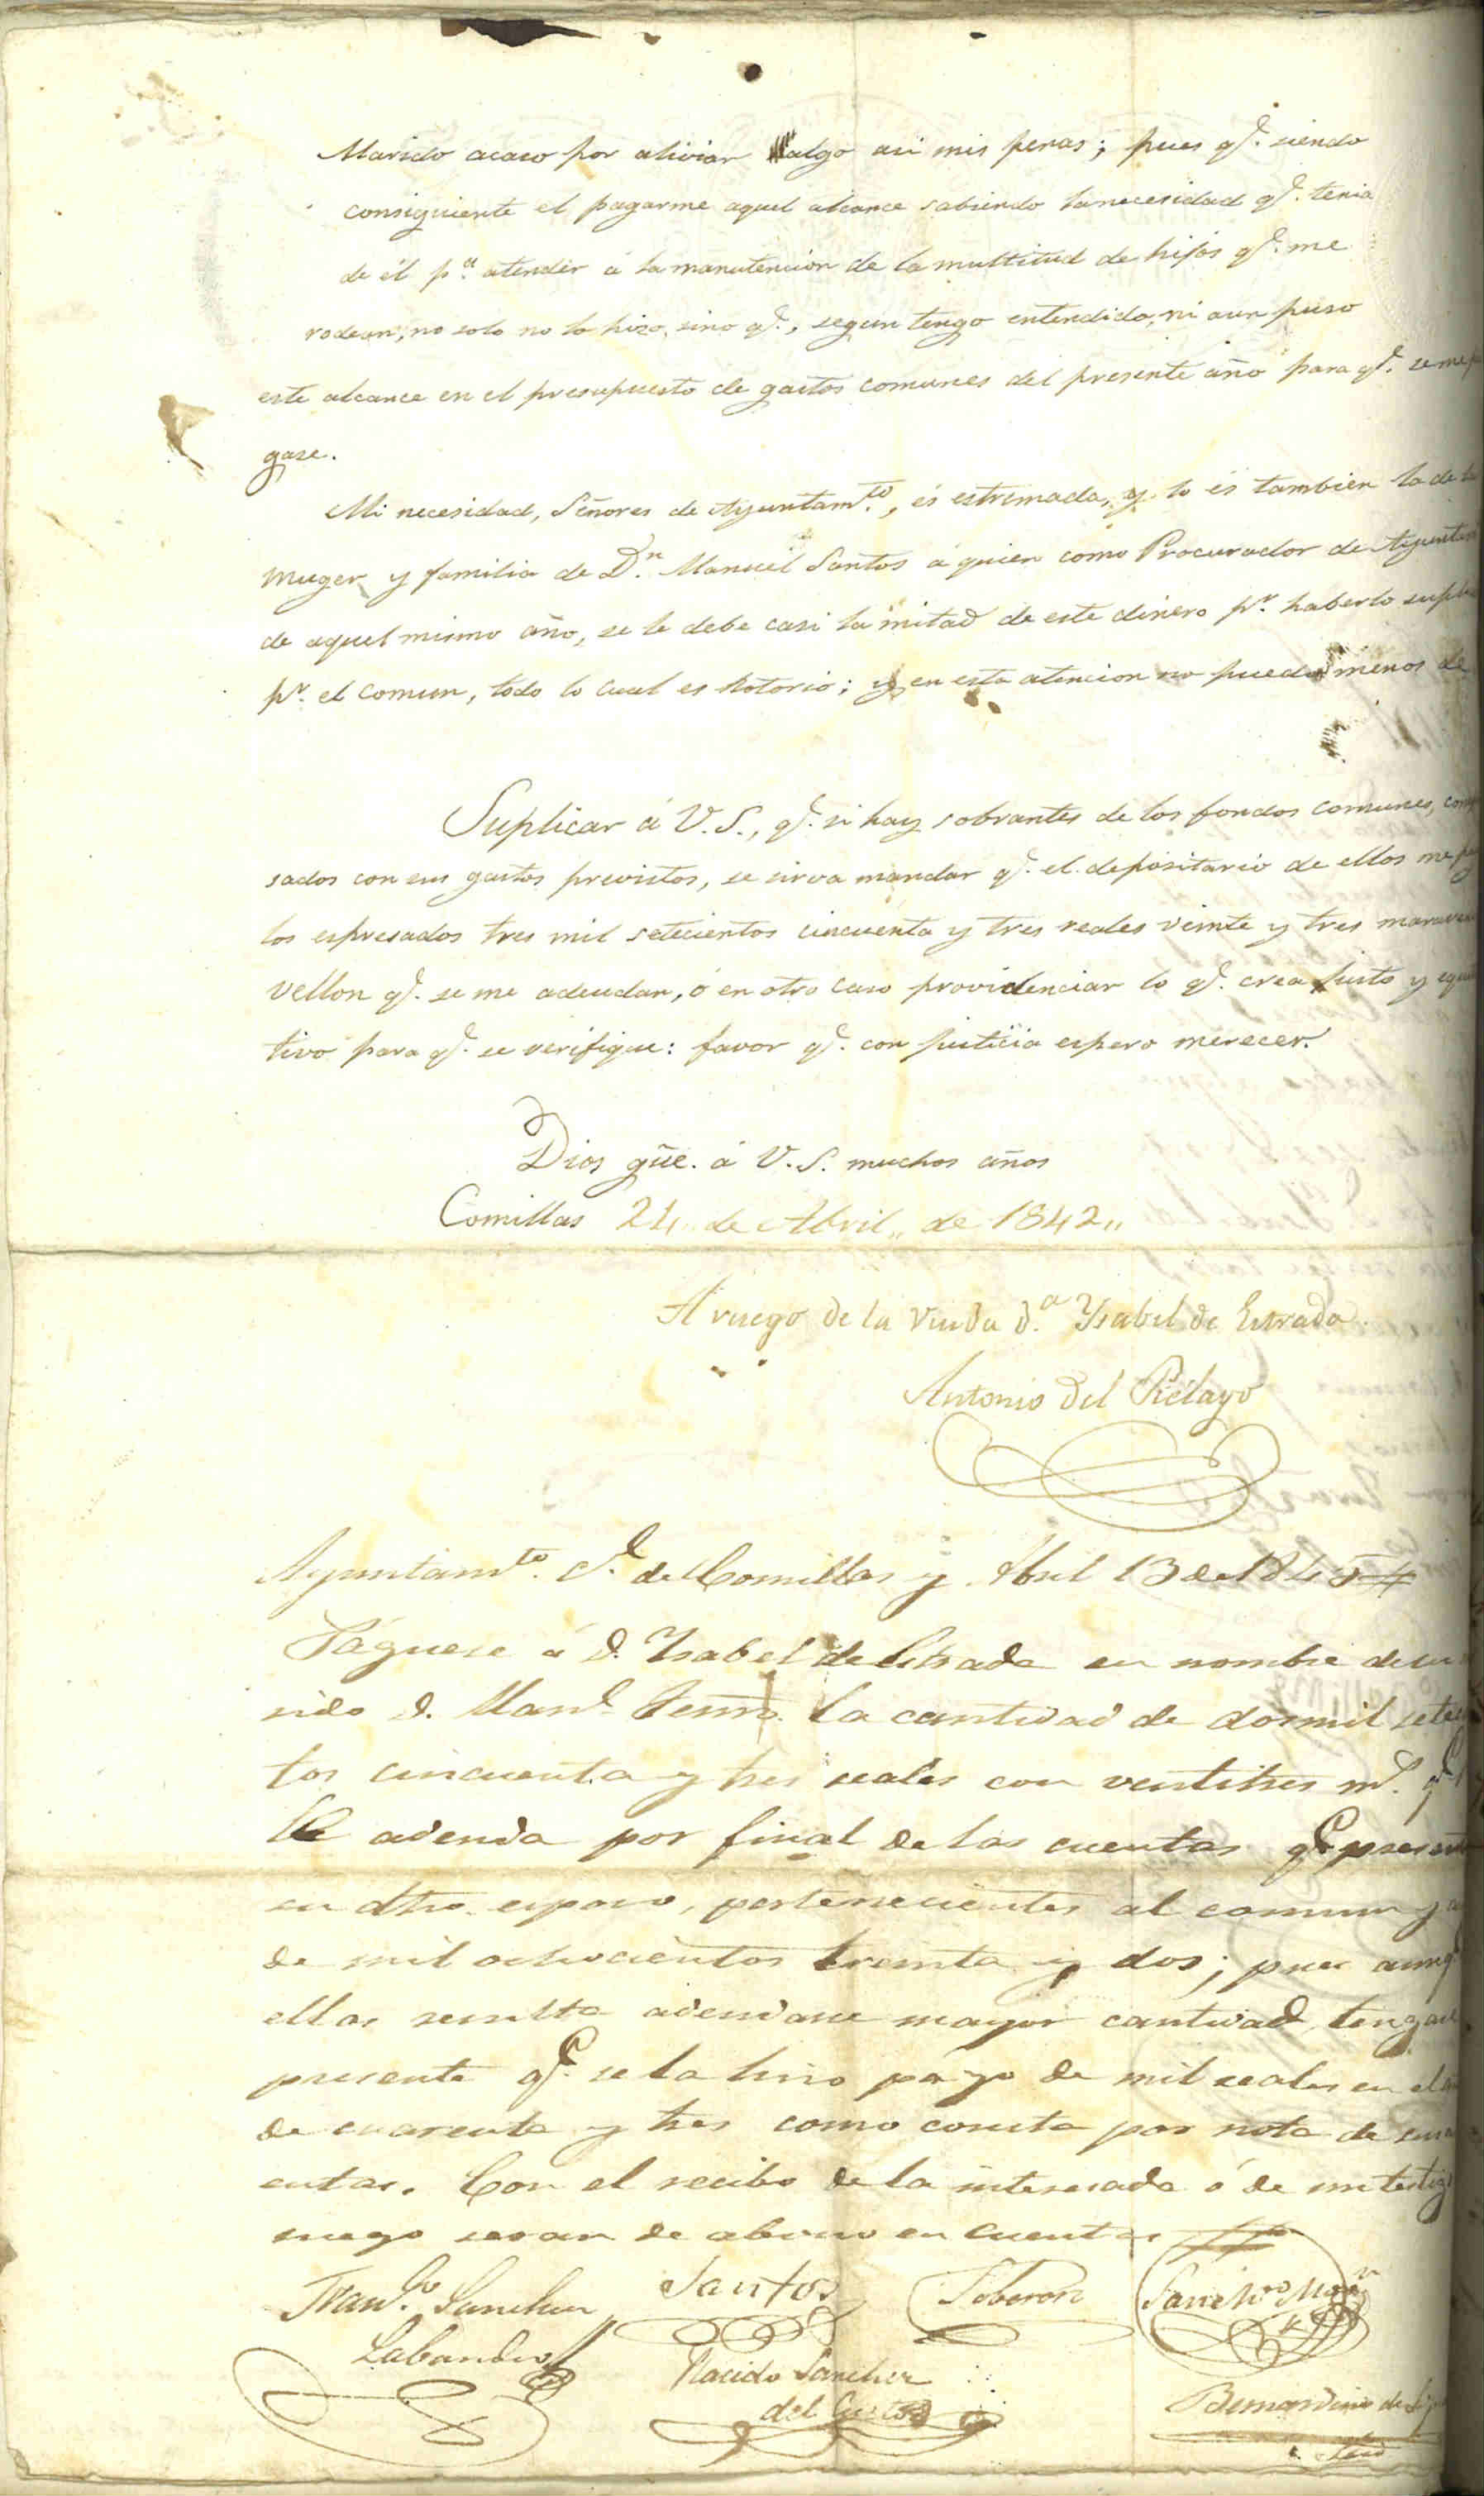 Marido acaso por aliviar algo asi mis penas; pues qe. siendo
consiguiente el pagarme aquel alcance sabiendo la necesidad qe. tenia
de él pa. atender á la manutencion de la multitud de hijos qe. me
rodean, no solo no lo hizo, sino qe., segun tengo entendido, ni aun puso
este alcance en el presupuesto de gastos comunes del presente año para qe. se me pa
gase.
Mi necesidad, Señores de Ayuntamto., és estremada, y lo és tambien la de la
muger y familia de Dn. Manuel Santos á quien como Procurador de Ayuntam
de aquel mismo año, se le debe casi la mitad de este dinero pr. haberlo supli
pr. el comun, todo lo cual es notorio; y en esta atencion no puedo menos de
Suplicar á V.S., qe. si hay sobrantes de los fondos comunes,
sados con sus gastos previstos, se sirva mandar qe. el depositario de ellos me pa
los espresados tres mil setecientos cincuenta y tres reales veinte y tres marave
vellon qe. se me adeudan, ó en otro caso providenciar lo qe. crea justo y equi
tivo para qe. se verifique: favor qe. con justicia espero merecer.
Dios güe. á V.S. muchos años
Comillas 24 de Abril,, de 1842,,
A ruego de la Viuda d.a Ysabel de Estrada
Antonio del Piélago
Ayuntamto. Cl. de Comillas y Abril 13 de 1845
Páguese á D. Ysabel de Estrada en nombre de su
rido D. Manl. la cantidad de dos mil sete
tos cincuenta y tres reales con veintitres ms. qe.
le adeuda por final de las cuentas qe. presentó
en dho. esposo, pertenecientes al comun y a
de mil ochocientos treinta y dos; pues aunqe.
ellas resulta adeudase mayor cantidad, tengase
presente qe. se la hizo pago de mil reales en el a
de cuarenta y tres como consta por nota de
entas. Con el recibo de la interesada ó de un testigo
ruego seran de abono en cuentas
Franco. Sanchez
Labandero
Santos
Soberon
Placido Sanchez
del
Bernardino de